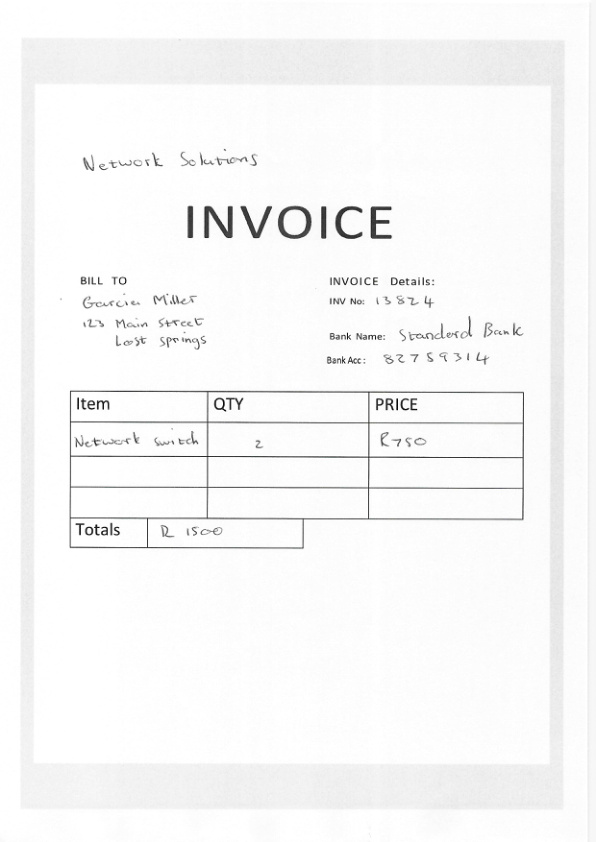 Network Solutions
INVOICE
BILL TO
Garcia Miller
123 Main Street
Lost springs
INVOICE Details:
INV No: 13824
Bank Name: Standerd Bank
Bank Acc: 82759314
Item QTY PRICE
Network switch 2 R750
Totals R 1500